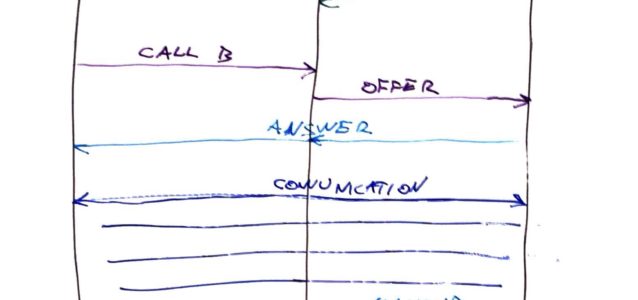 CALL B
OFFER
ANSWER
COMUNICATION